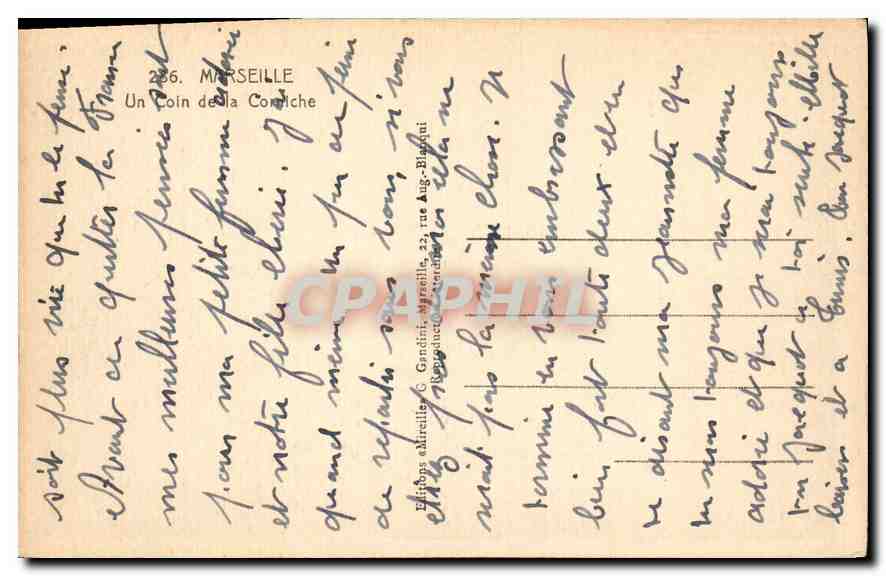 236. MARSEILLE
Un Coin de la Corniche
Editions "Mireille" G. Gandini, Marseille, 22, rue Aug.-Blanqui
(Reproduction interdite)
CPAPHIL
soit plus vite que tu le
Avant de quitter la France
mes meilleures pensées sont
pour ma petite femme adorée
et notre fille chérie. J'ai
quand même un peu de peine
de repartir sans vous, si vous
étiez près de moi cela ne
serait pas la même chose. Je
termine en vous embrassant
bien fort toute deux et en
te disant ma Jeannette que
tu seras toujours ma femme
adorée et que je serai toujours
ton Jacquot à toi seule. Mille
baisers et à Tunis. Ton Jacquot